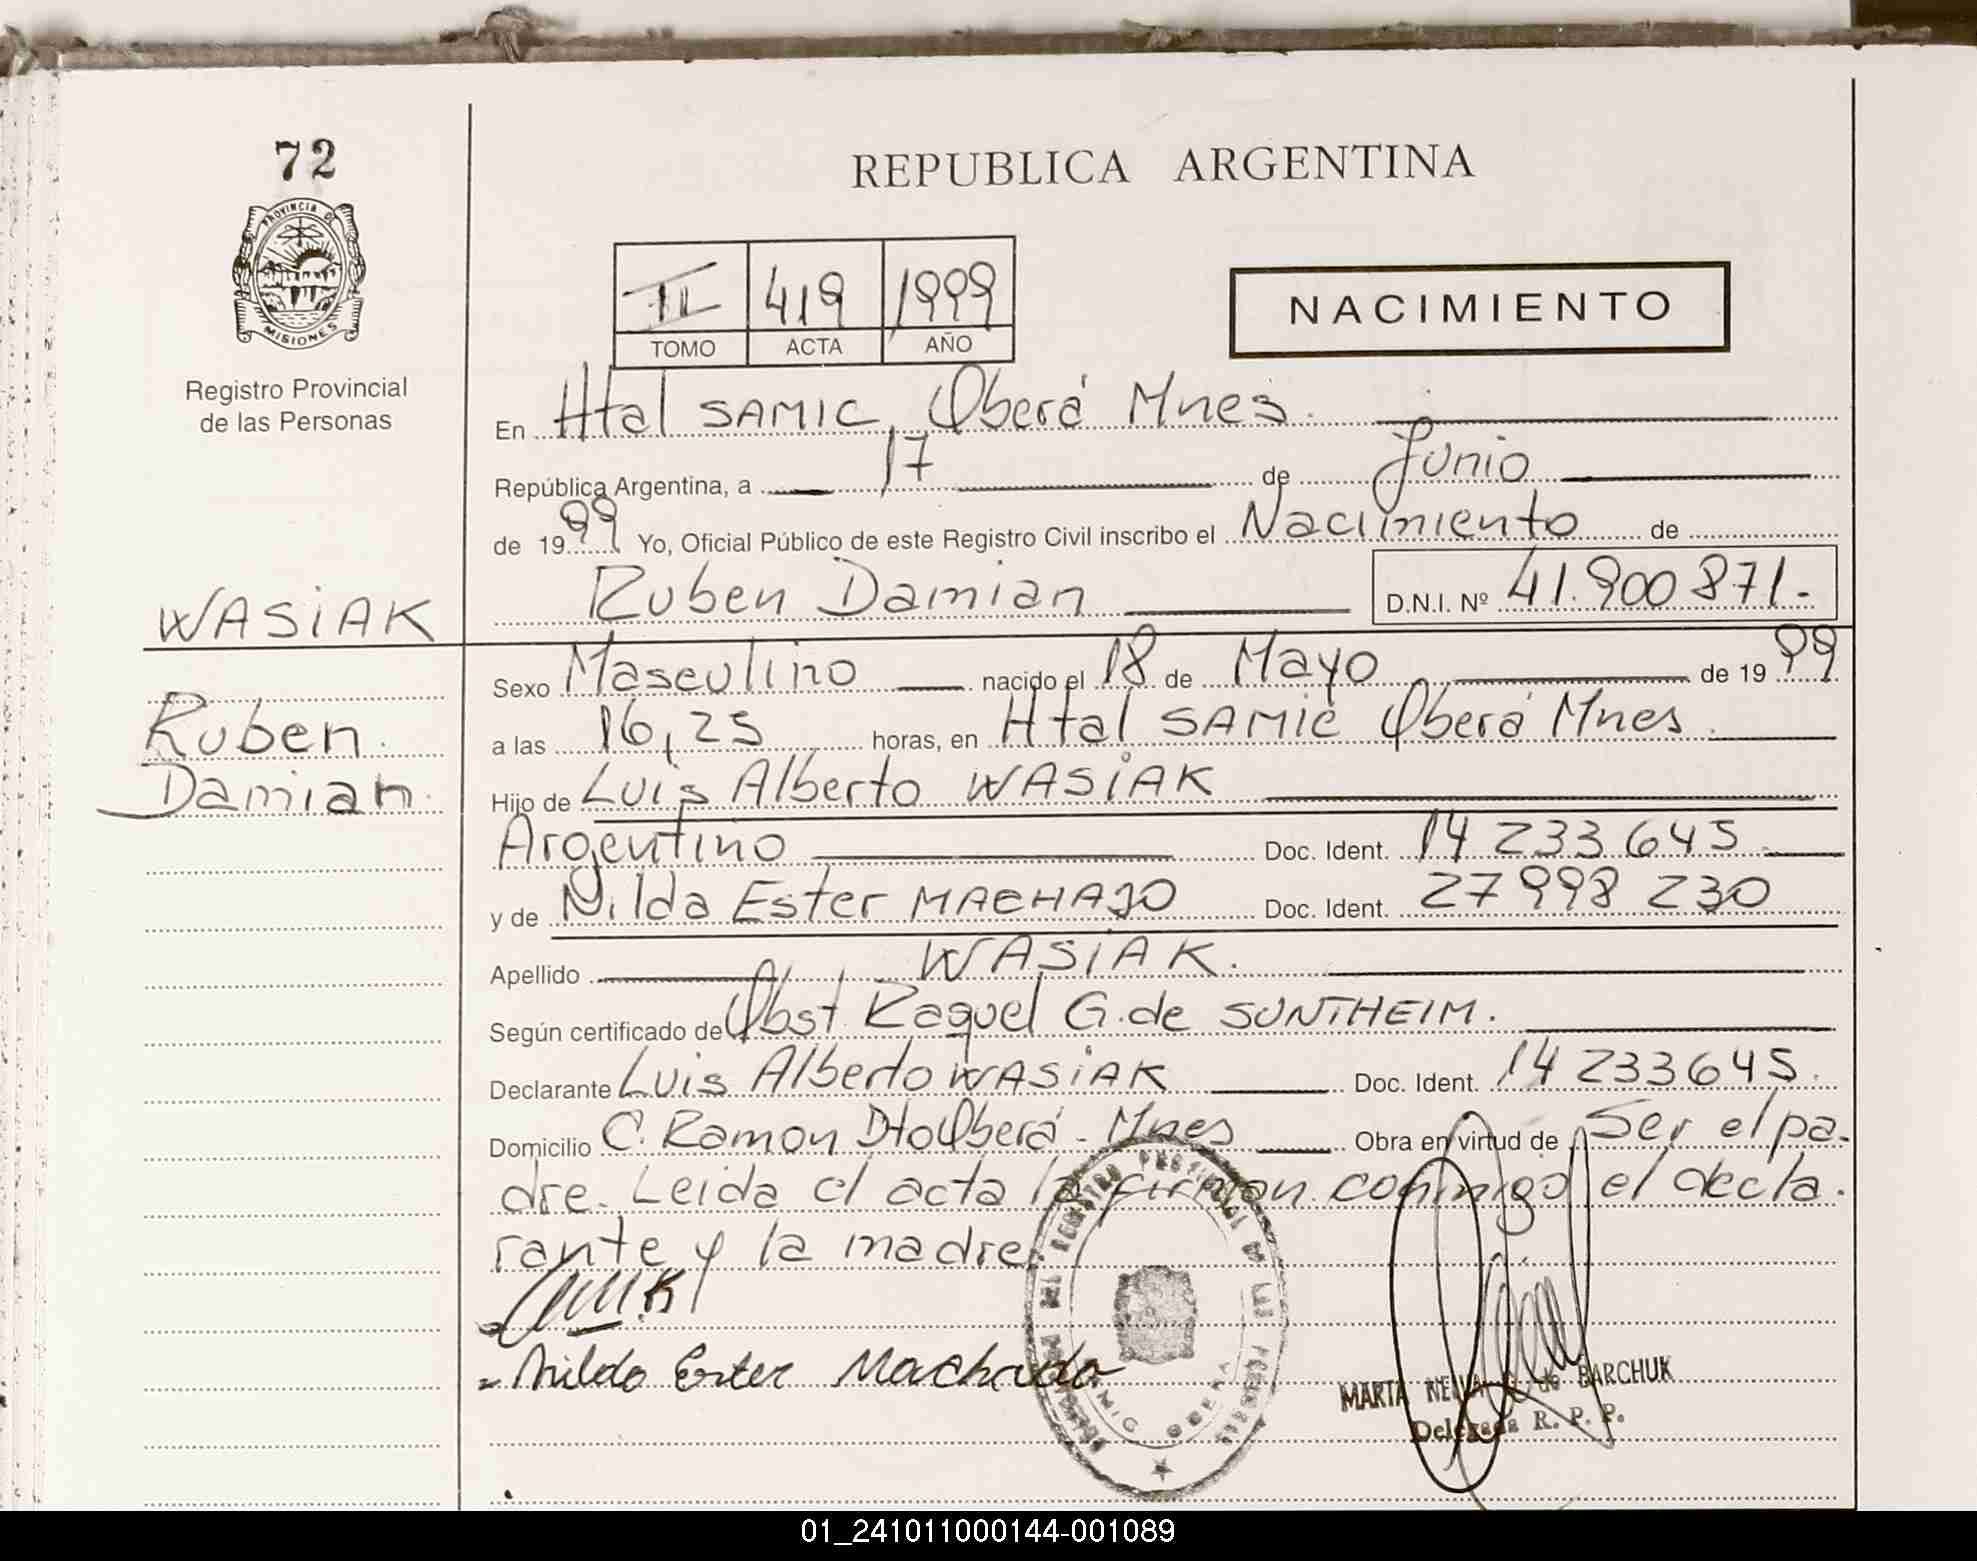 72
PROVINCIA DE
MISIONES
Registro Provincial
de las Personas
WASIAK
Ruben
Damian
REPUBLICA ARGENTINA
II 419 1999
TOMO ACTA AÑO
NACIMIENTO
En Htal SAMIC, Oberá Mnes.
República Argentina, a 17 de Junio
de 1999 Yo, Oficial Público de este Registro Civil inscribo el Nacimiento de
Ruben Damian D.N.I. Nº 41.900871.-
Sexo Masculino nacido el 18 de Mayo de 1999
a las 16,25 horas, en Htal SAMIC Oberá Mnes.
Hijo de Luis Alberto WASIAK
Argentino Doc. Ident. 14 233 645
y de Nilda Ester MACHADO Doc. Ident. 27 998 230
Apellido WASIAK.
Según certificado de Obst Raquel G. de SUNTHEIM.
Declarante Luis Alberto WASIAK Doc. Ident. 14 233645.
Domicilio C. Ramon Dto Oberá - Mnes Obra en virtud de Ser el pa-
dre. Leida el acta la firman conmigo el decla-
rante y la madre
Nilda Ester Machado
MARTA de BARCHUK
Delegada R. P. P.
01_241011000144-001089